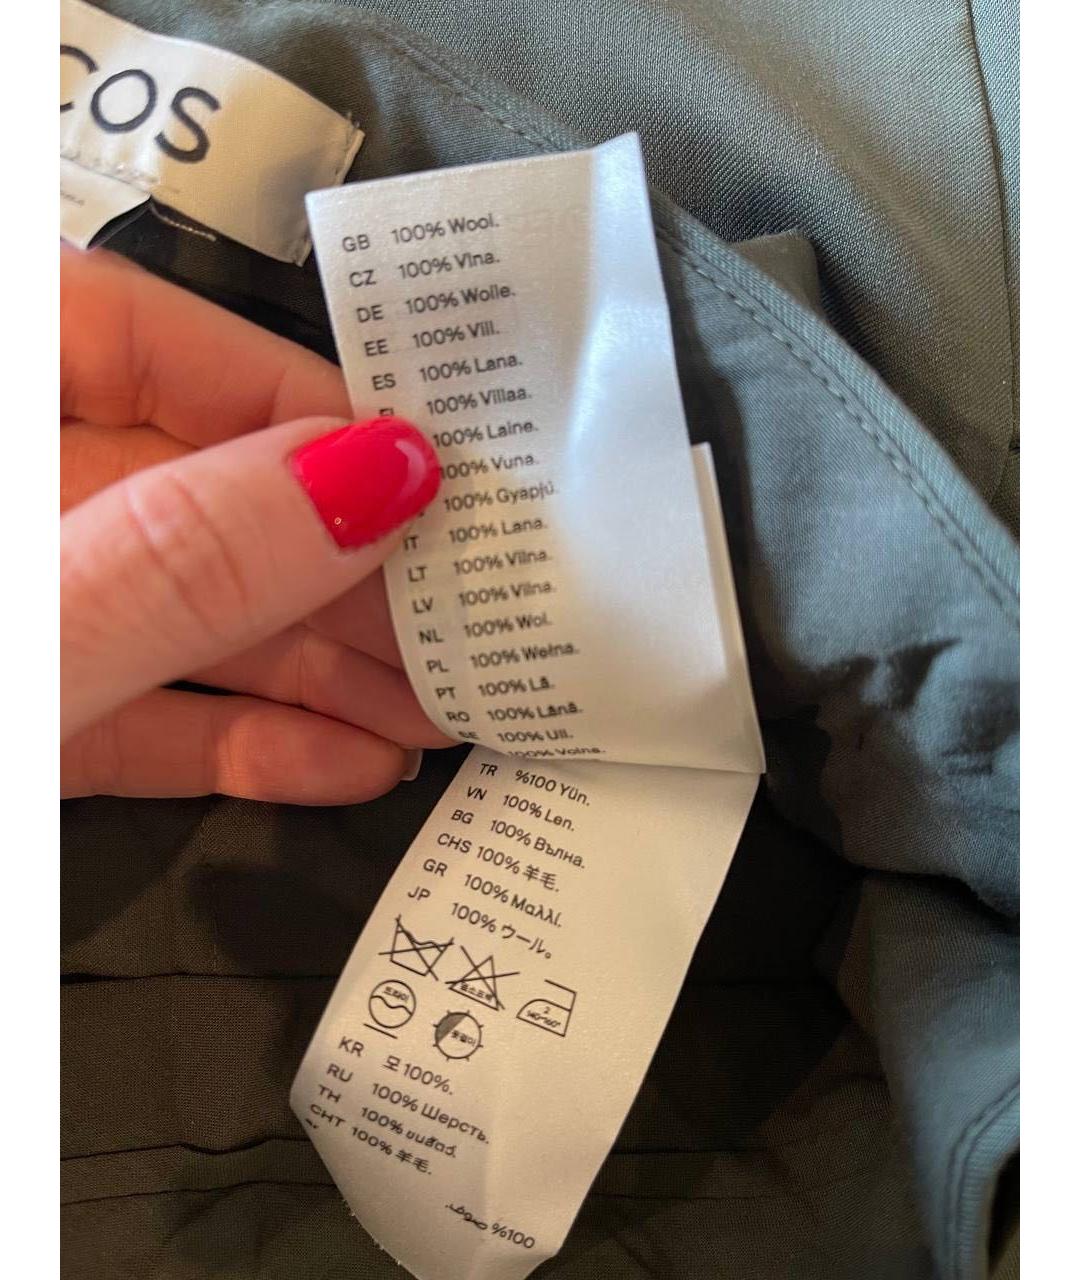 COS
GB 100% Wool.
CZ 100% Vlna.
DE 100% Wolle.
EE 100% Vill.
ES 100% Lana.
FI 100% Villaa.
100% Laine.
100% Vuna.
100% Gyapjú.
IT 100% Lana.
LT 100% Vilna.
LV 100% Vilna.
NL 100% Wol.
PL 100% Wełna.
PT 100% Lã.
RO 100% Lână.
SE 100% Ull.
100% Volna.
TR %100 Yün.
VN 100% Len.
BG 100% Вълна.
CHS 100% 羊毛.
GR 100% Μαλλί.
JP 100% ウール。
드라이
염소표백
2
140~160°
옷걸이
KR 모 100%.
RU 100% Шерсть.
TH 100% ขนสัตว์.
CHT 100% 羊毛.
100% صوف.